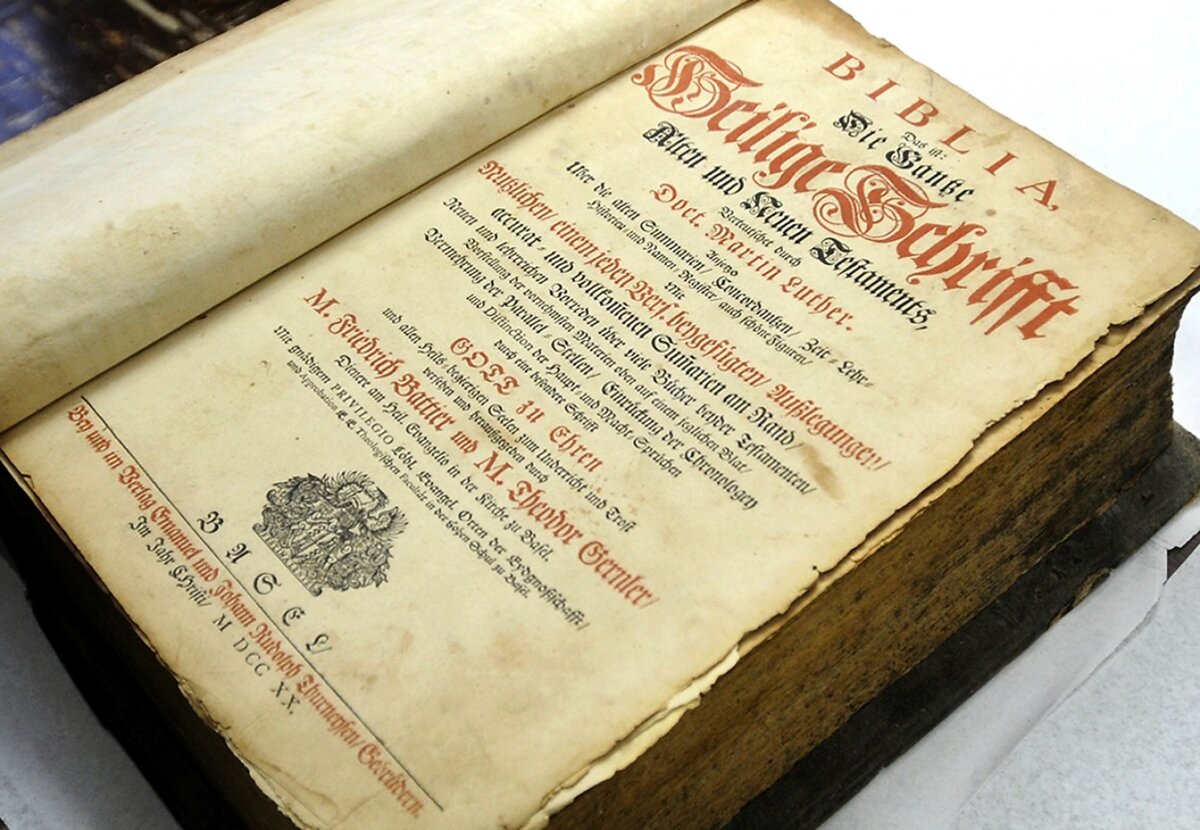 BIBLIA,
Das ist:
Die Gantze
Heilige Schrifft
Alten und Neuen Testaments,
Verteutschet durch
Doct. Martin Luther.
Anjetzo
Uber die alten Summarien/ Concordantzen/ Zeit- Lehr-
Historien- und Namen-Register/ auch schöne Figuren/
Mit
Nutzlichen/ einem jeden Vers. beygefügten/ Außlegungen/
accurat- und vollkom̄enen Sum̄arien am Rand/
Neuen und lehrreichen Vorreden über viele Bücher beyder Testamenten/
Vorstellung der vornehmsten Materien oben auf einem jeglichen Blat/
Vermehrung der Parallel Stellen/ Einrückung der Chronologey
und Distinction der Haupt- und Macht-Sprüchen
durch eine besondere Schrifft
GOTT zu Ehren
und allen Heils-begierigen Seelen zum Unterricht und Trost
versehen und herausgegeben durch
M. Friedrich Battier und M. Theodor Gernler/
Diener am Heil. Evangelio in der Kirche zu Basel.
Mit gnädigem PRIVILEGIO Löbl. Evangel. Orten der Eydgnoßschafft/
und Approbation Theologischen Facultät in der Hohen Schul zu Basel.
BASEL/
Bey und im Verlag Emanuel und Johann Rudolph Thurneysen/ Gebrüdern.
Im Jahr Christi/ M DCC XX.